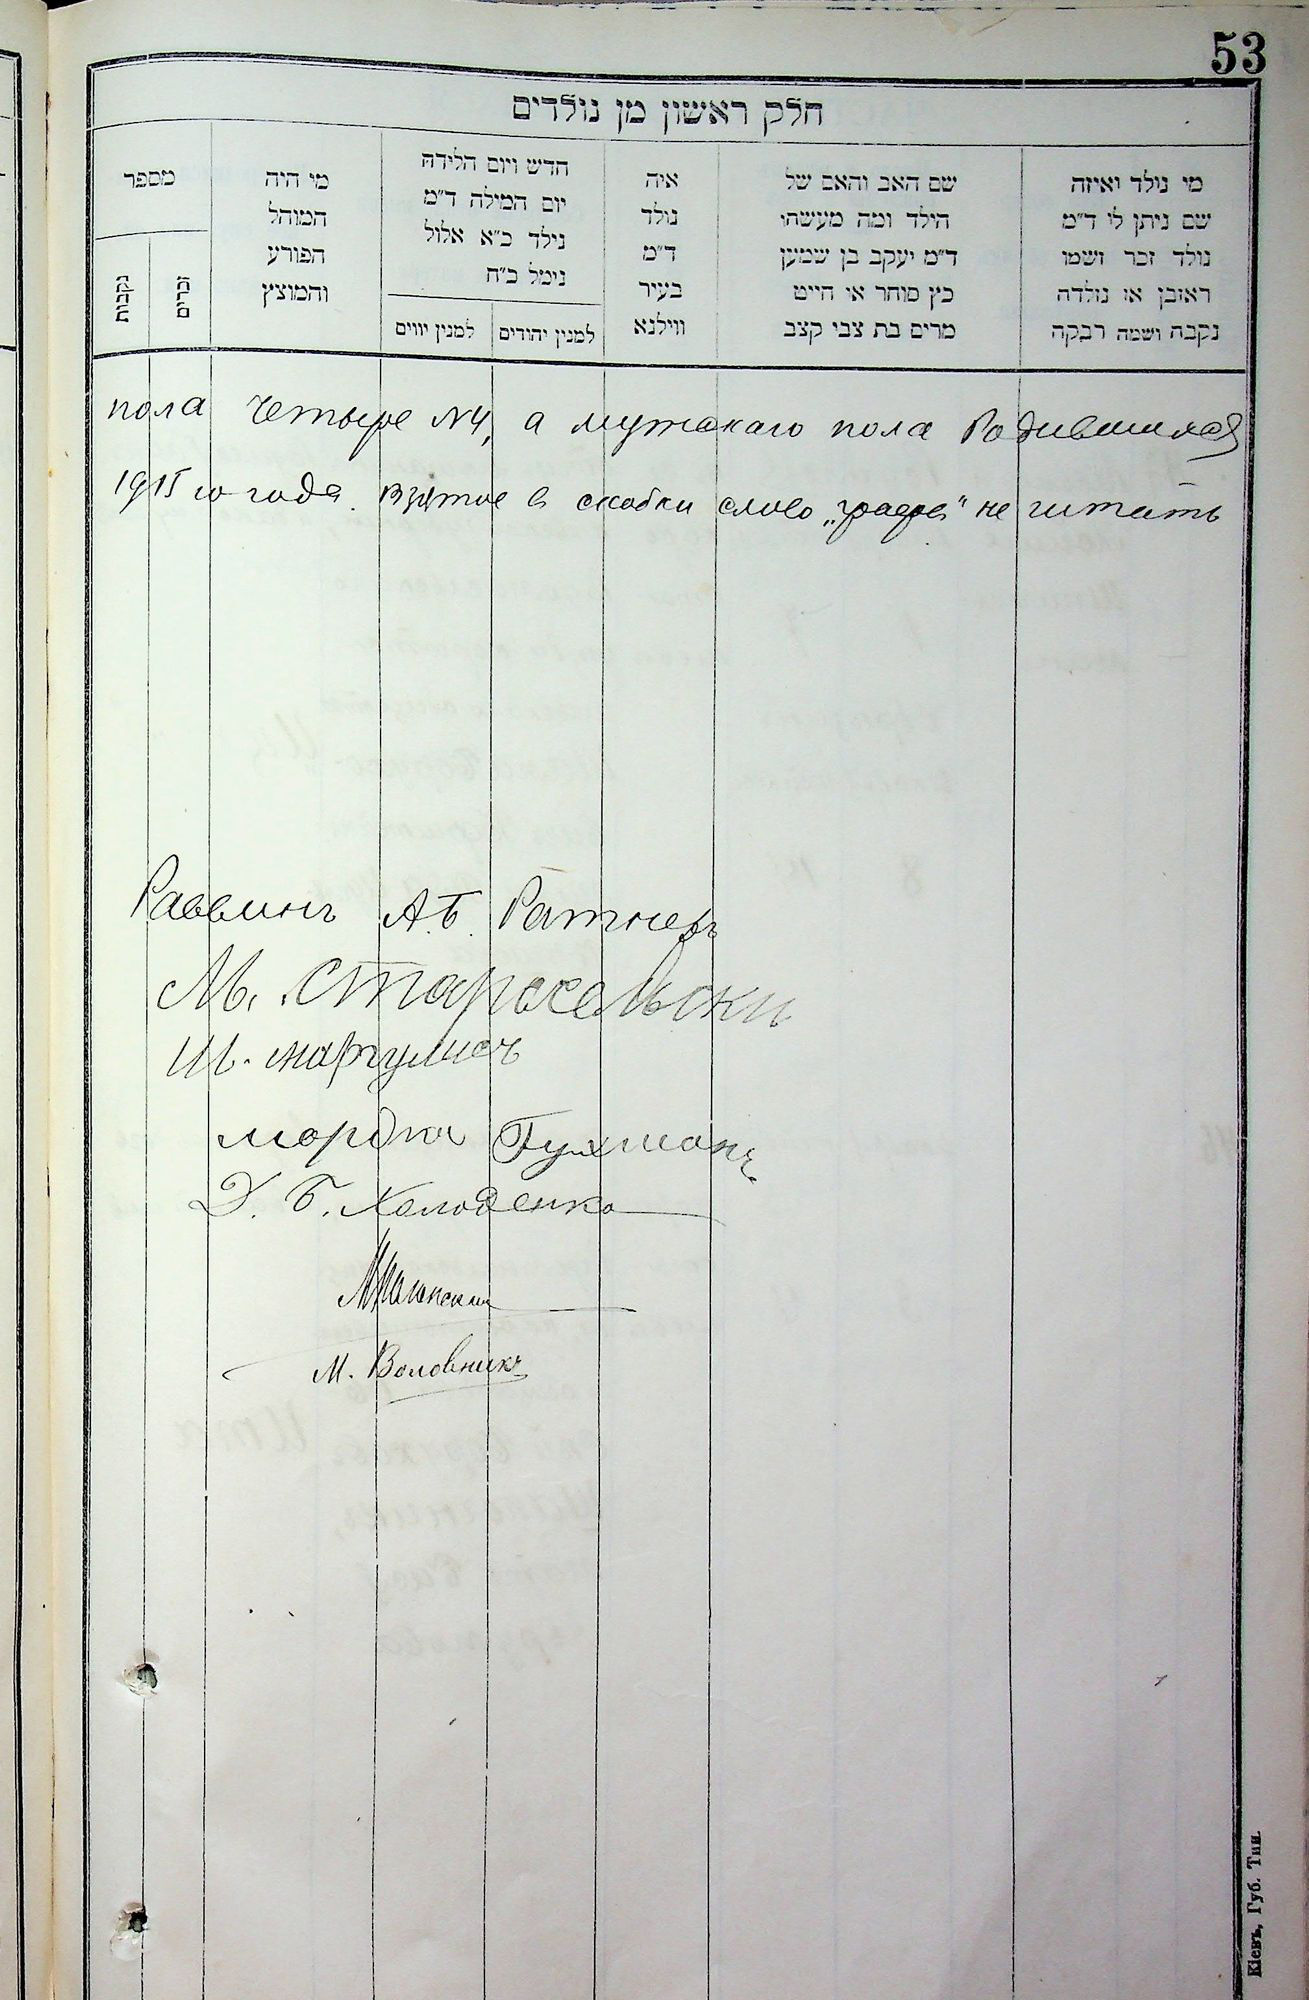 53
חלק ראשון מן נולדים
מי נולד ואיזה
שם ניתן לו ד"מ
נולד זכר ושמו
ראובן או נולדה
נקבה ושמה רבקה
שם האב והאם של
הילד ומה מעשהו
ד"מ יעקב בן שמעון
כץ סוחר או חייט
מרים בת צבי קצב
איה
נולד
ד"מ
בעיר
ווילנא
חדש ויום הלידה
יום המילה ד"מ
נילד כ"א אלול
נימל כ"ח
למנין יהודים
למנין יווים
מי היה
המוהל
הפורע
והמוצץ
מספר
זכרים
נקבות
пола четыре №4, а мужскаго пола Родившихся
1915 го года. Взятое в скобки слово не читать
Раввинъ А.Б. Ратнеръ
М. Старосельски
Ш. Маргулисъ
Мордка Гухманъ
Х. Б. Холоденко
М. Воловникъ
Кіевъ, Губ. Тип.